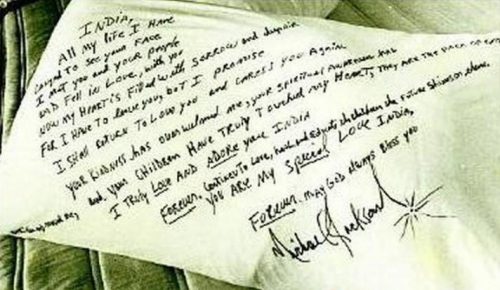 INDIA,
All my life I HAVE
longed to see your FACE
I met you and your people
and fell in love, with you
NOW my HEART is filled with SORROW and despair
FOR I HAVE to leave you, but I PROMISE
I shall return to LOVE you and CARESS you AGAIN
your KINDNESS has overwhelmed me, your spiritual awareness has
And, your CHILDREN HAVE Truly Touched my HEART, they ARE the FACE OF GOD
I Truly LOVE AND ADORE you INDIA
FOREVER, continue to love, heal and educate the children, the future shines on them.
YOU ARE MY special LOVE INDIA,
FOREVER, MAY GOD Always bless you
Michael Jackson